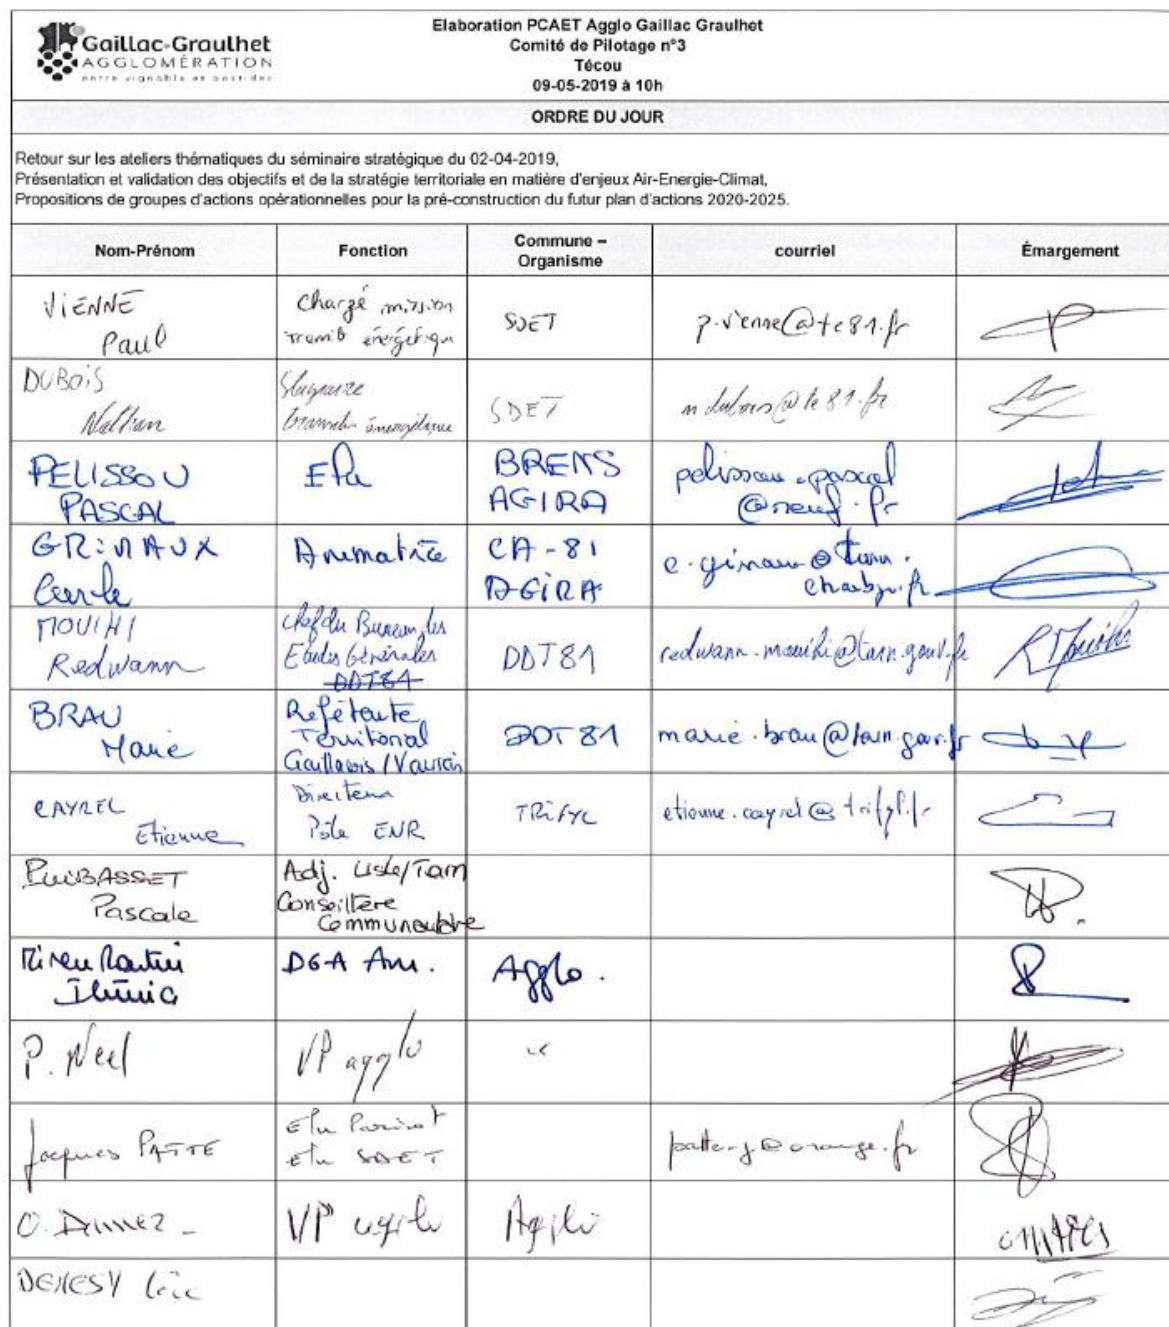 Gaillac-Graulhet
AGGLOMÉRATION
entre vignoble et bastides
Elaboration PCAET Agglo Gaillac Graulhet
Comité de Pilotage n°3
Técou
09-05-2019 à 10h
ORDRE DU JOUR
Retour sur les ateliers thématiques du séminaire stratégique du 02-04-2019,
Présentation et validation des objectifs et de la stratégie territoriale en matière d'enjeux Air-Energie-Climat,
Propositions de groupes d'actions opérationnelles pour la pré-construction du futur plan d'actions 2020-2025.
Nom-Prénom
Fonction
Commune –
Organisme
courriel
Émargement
VIENNE
Paul
Chargé mission
énergétique
SDET
p.vienne@te81.fr
DUBOIS
Nathan
Stagiaire
énergétique
SDET
n.dubois@te81.fr
PELISSOU
PASCAL
Elu
BRENS
AGIRA
pelissou.pascal
@neuf.fr
Animatrice
CA-81
AGIRA
MOUIHI
Redwann
chef du Bureau des
Etudes Générales
DDT81
DDT81
redwann.mouihi@tarn.gouv.fr
R Mouihi
BRAU
Marie
Référente
Territorial
DDT 81
marie.brau@tarn.gouv.fr
CAYREL
Etienne
Directeur
Pôle ENR
TRIFYL
etienne.cayrel@trifyl.fr
PUIBASSET
Pascale
Adj. Lisle/Tarn
Conseillère
Communautaire
DGA
Agglo.
P. Neel
VP agglo
Jacques PATTE
Elu Parisot
Elu SDET
patte-j@orange.fr
O.
VP agglo
Agglo